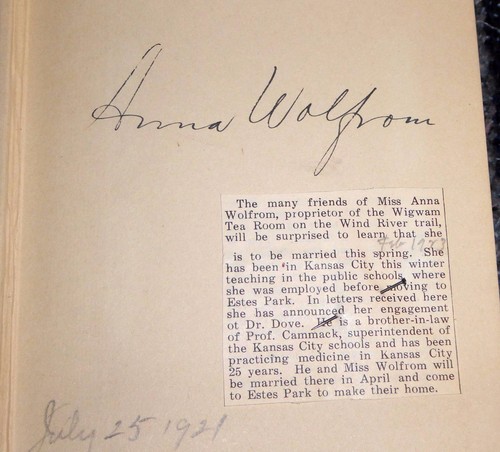 Anna Wolfrom
The many friends of Miss Anna
Wolfrom, proprietor of the Wigwam
Tea Room on the Wind River trail,
will be surprised to learn that she
is to be married this spring. She
has been in Kansas City this winter
teaching in the public schools, where
she was employed before moving to
Estes Park. In letters received here
she has announced her engagement
ot Dr. Dove. He is a brother-in-law
of Prof. Cammack, superintendent of
the Kansas City schools and has been
practicing medicine in Kansas City
25 years. He and Miss Wolfrom will
be married there in April and come
to Estes Park to make their home.
July 25 1921